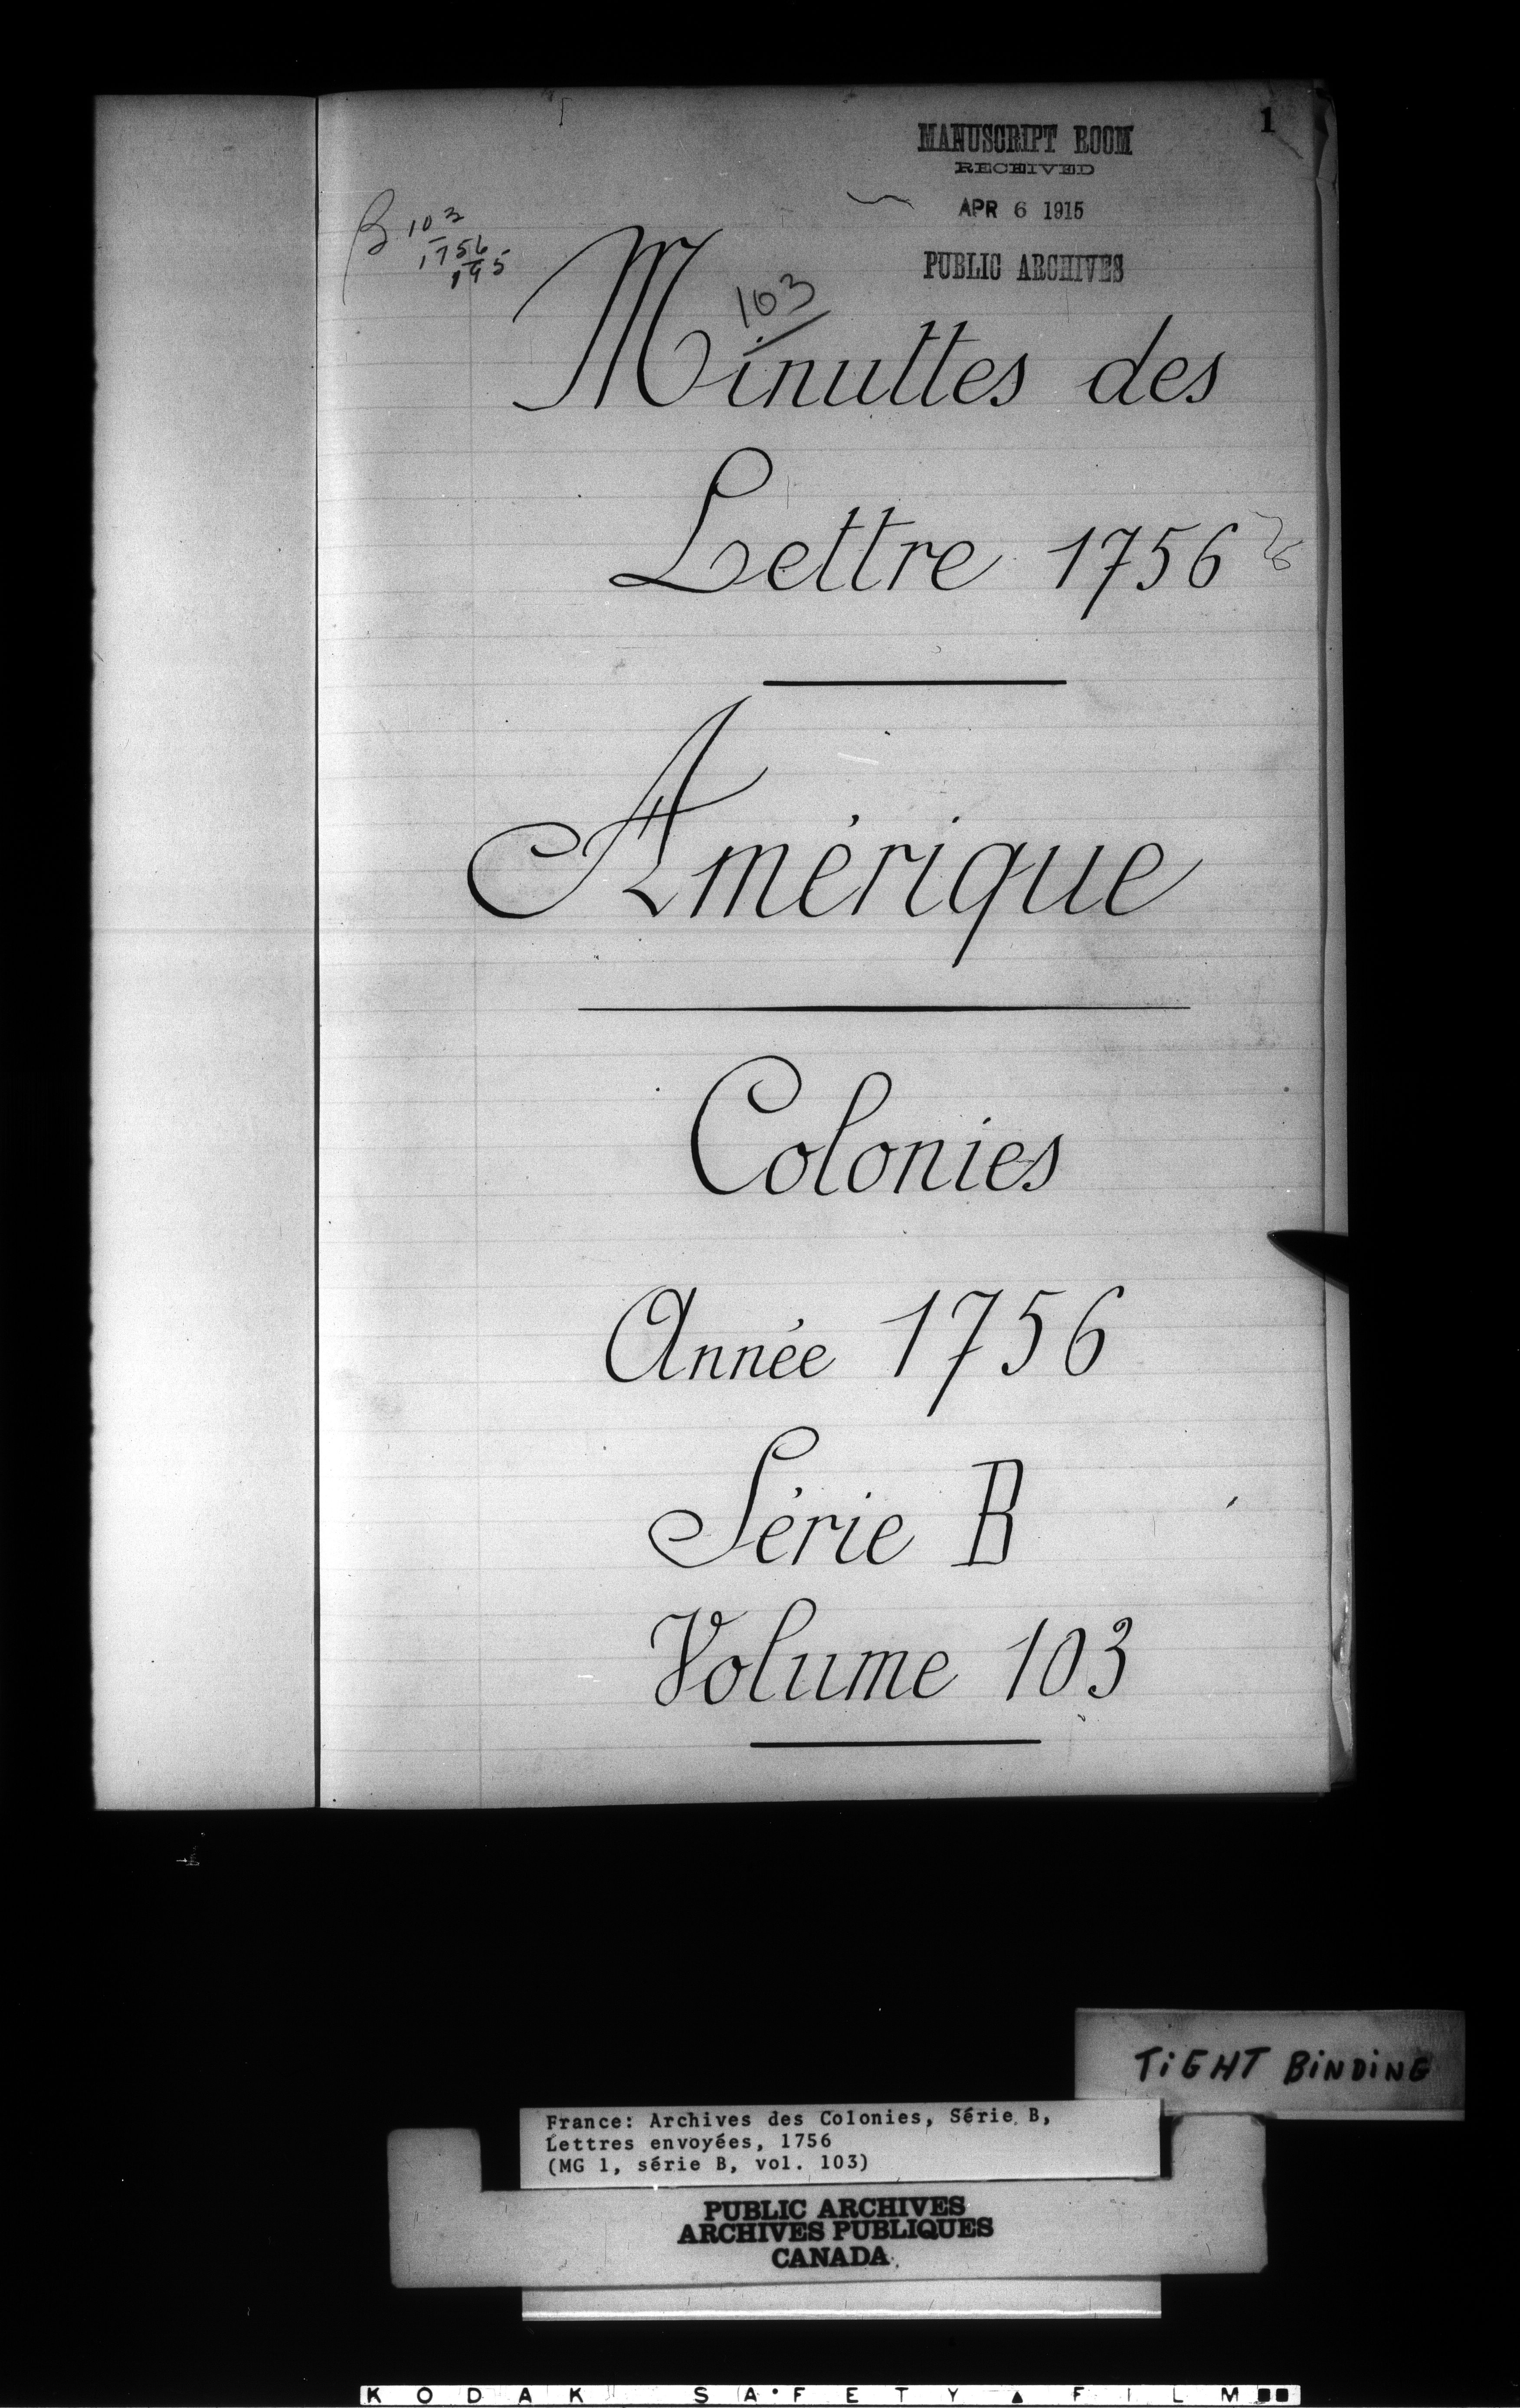 1
MANUSCRIPT ROOM
RECEIVED
APR 6 1915
PUBLIC ARCHIVES
B 103
1756
195
103
Minuttes des
Lettre 1756
Amérique
Colonies
Année 1756
Série B
Volume 103
TiGHT BiNDiNG
France: Archives des Colonies, Série B,
Lettres envoyées, 1756
(MG 1, série B, vol. 103)
PUBLIC ARCHIVES
ARCHIVES PUBLIQUES
CANADA
KODAK SAFETY FILM